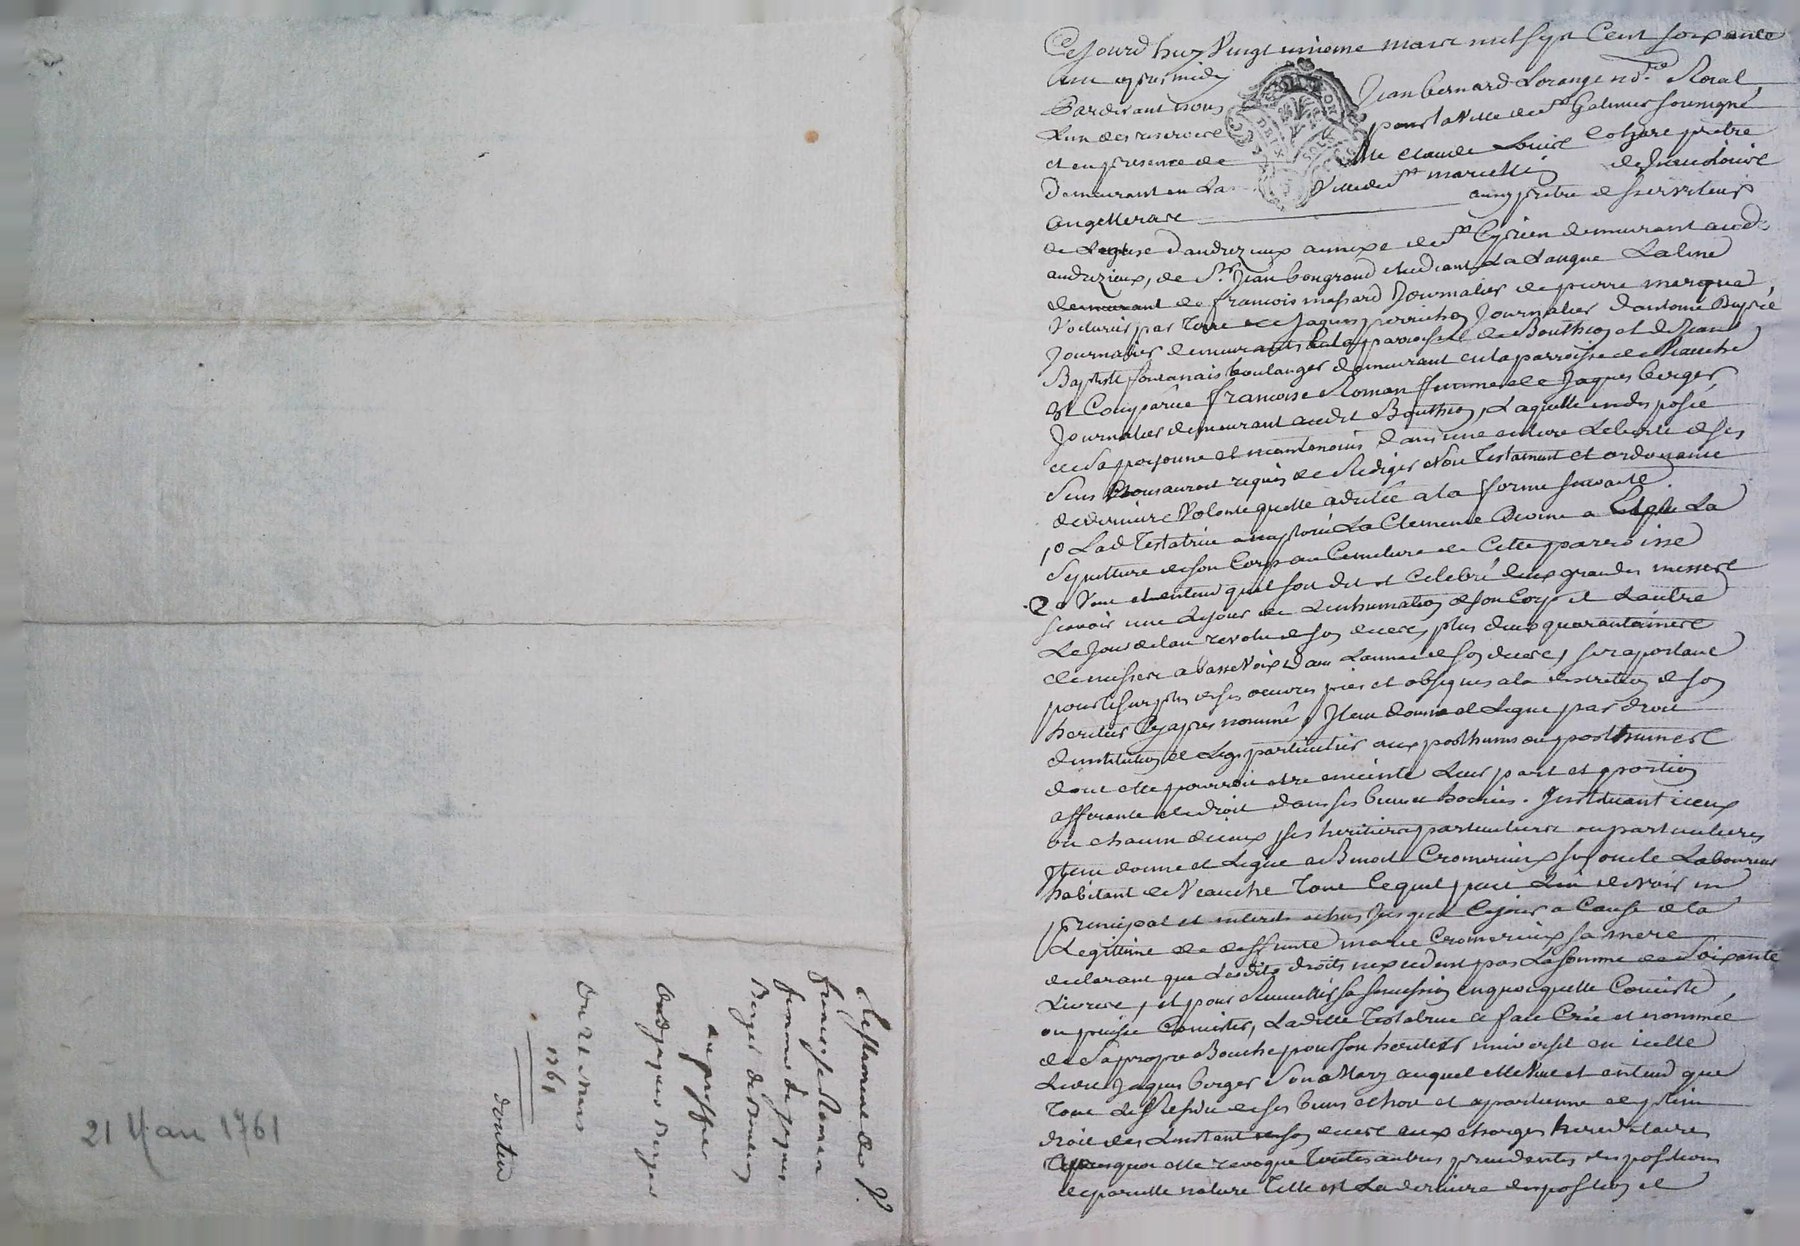 Cejourd'huy Vingt unieme mars mil sept Cent soixante
un apres midy
Pardevant nous Jean bernard Lorange no.re Roial
Lun des reservés pour la Ville de st Galmier soussigné
et en presence de Me Claude Louis prêtre
demeurant en la Ville de st marcellin
aussy prêtre desserviteur
de Leglise d'andrezieux annexe de st Cyprien demeurant aud.
andrezieux, de Sr. Jean bougrand etudiant La Langue Latine
demurant de francois massard Journalier de pierre merque
Voiturier par terre de Jaques perrichon Journalier d'antoine
Journalier demeurants en la parroisse de Bouthion et de Jean
Baptiste boulanger demeurant en la parroisse de Veauche
Est Comparüe francoise Roman femme de Jaques berger
Journalier demeurant audit Bouthion, Laquelle indisposée
de sa personne et neantmoins dans une entiere Liberté de ses
sens Nous auroit requis de Rediger son Testament et ordonnance
de derniere Volonté quelle a dictée a la forme suivante
1o Lad. Testatrice a imploré La Clemence Divine a Elu La
sepulture de son Corps au Cimetiere de Cette parroisse
2o Veut et entend quil soit dit et Celebré deux grandes messes
scavoir une Lejour de Linhumation de son Corps et Lautre
Le Jour de lan revolu de son deces, plus deux quarantaines
de messes a basse Voix dans Lannée de son deces, se raportant
pour le surplus de ses oeuvres pies et obseques a la discretion de son
heritier Cy apres nommé, Item donne et Legue par droit
d'institution et Legs particulier aux posthumes ou posthumes
dont elle pourroit etre enceinte Leur part et portion
afferante de droit dans ses biens et hoiries. Instituant iceux
ou chacun d'iceux ses heritiers particuliers ou particulieres
Item donne et Legue a Benoit Cromerieux son oncle Laboureur
habitant de Veauche Tout Ce quil peut Lui devoir en
principal et interets echus Jusqua Cejour a Cause de la
Legitime de deffunte marie Cromerieux sa mere
declarant que Lesdits droits nexcedent pas La somme de Soixante
Livres, et pour Recueillir sa succession en quoy quelle Consiste
ou puisse Consister, Laditte Testatrice a fait Crée et nommée
de sa propre Bouche pour son heritier universel en icelle
Ledit Jaques berger Son Mary auquel elle Veut et entend que
Tout Le Residu de ses biens echoit et apartienne de plein
droit des Linstant de son deces aux charges hereditaires
Moyennant quoi elle revoque Toutes autres precedentes dispositions
de pareille nature Telle est La derniere disposition et
Testament de
francoise Roman
femme de Jaques
Berger de Bouthion
au proffit
dud. Jaques Berger
Du 21 mars
1761
21 Mars 1761